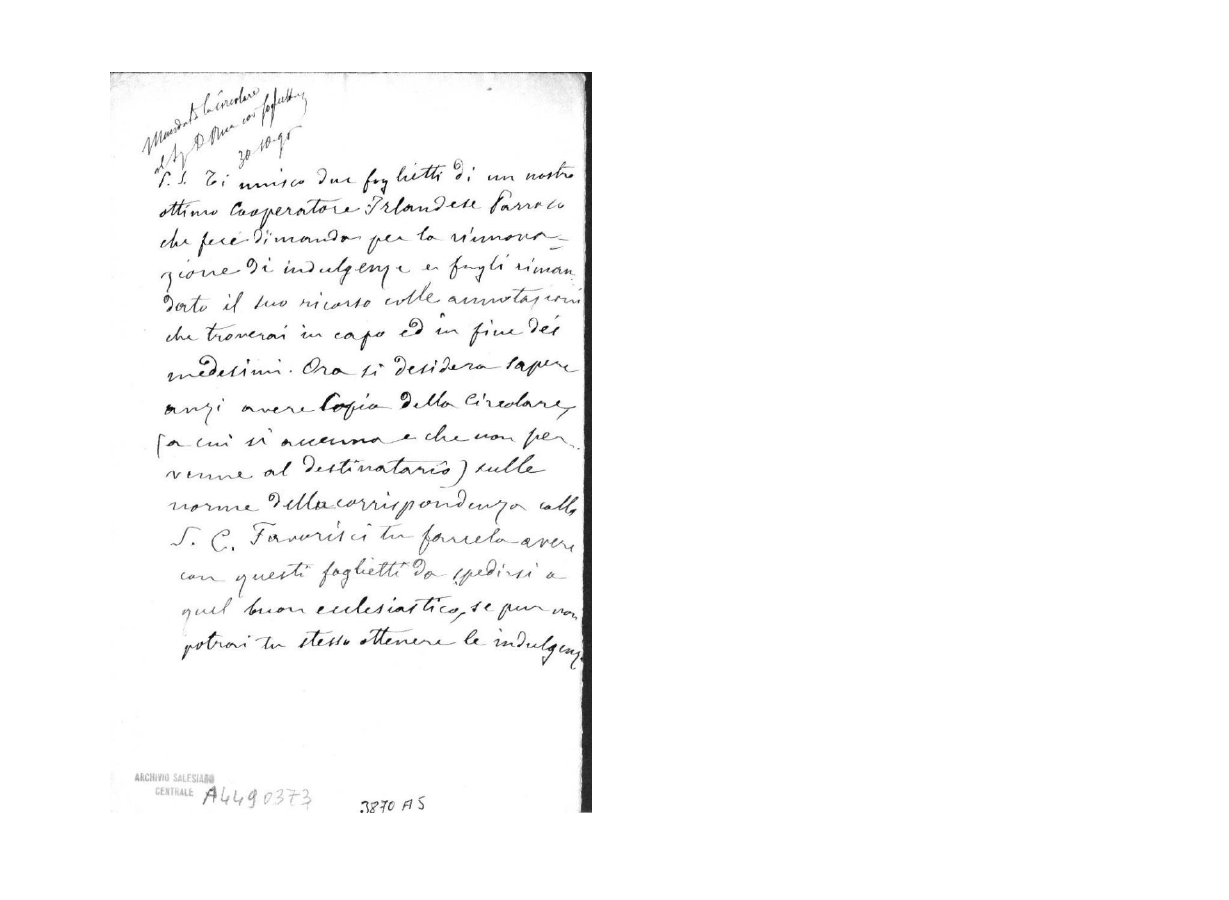 Mandata la circolare
al Sig. D. Rua coi foglietti
30-10-95
P.S. Ti unisco due foglietti di un nostro
ottimo Cooperatore Irlandese Parroco
che fece dimanda per la rinnova-
zione di indulgenze e fugli riman
dato il suo ricorso colle annotazioni
che troverai in capo ed in fine dei
medesimi. Ora si desidera sapere
anzi avere Copia della Circolare,
(a cui si accenna e che non per-
venne al destinatario) sulle
norme della corrispondenza colla
S. C. Favorisci tu farcela avere
con questi foglietti da spedirsi a
quel buon ecclesiastico, se pur non
potrai tu stesso ottenere le indulgenze
ARCHIVIO SALESIANO
CENTRALE A4490373
3870 AS